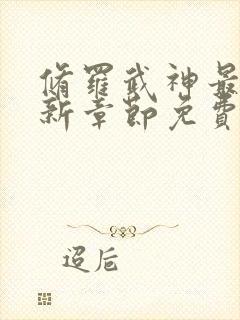 脩羅武神最
新章節免費
迢卮